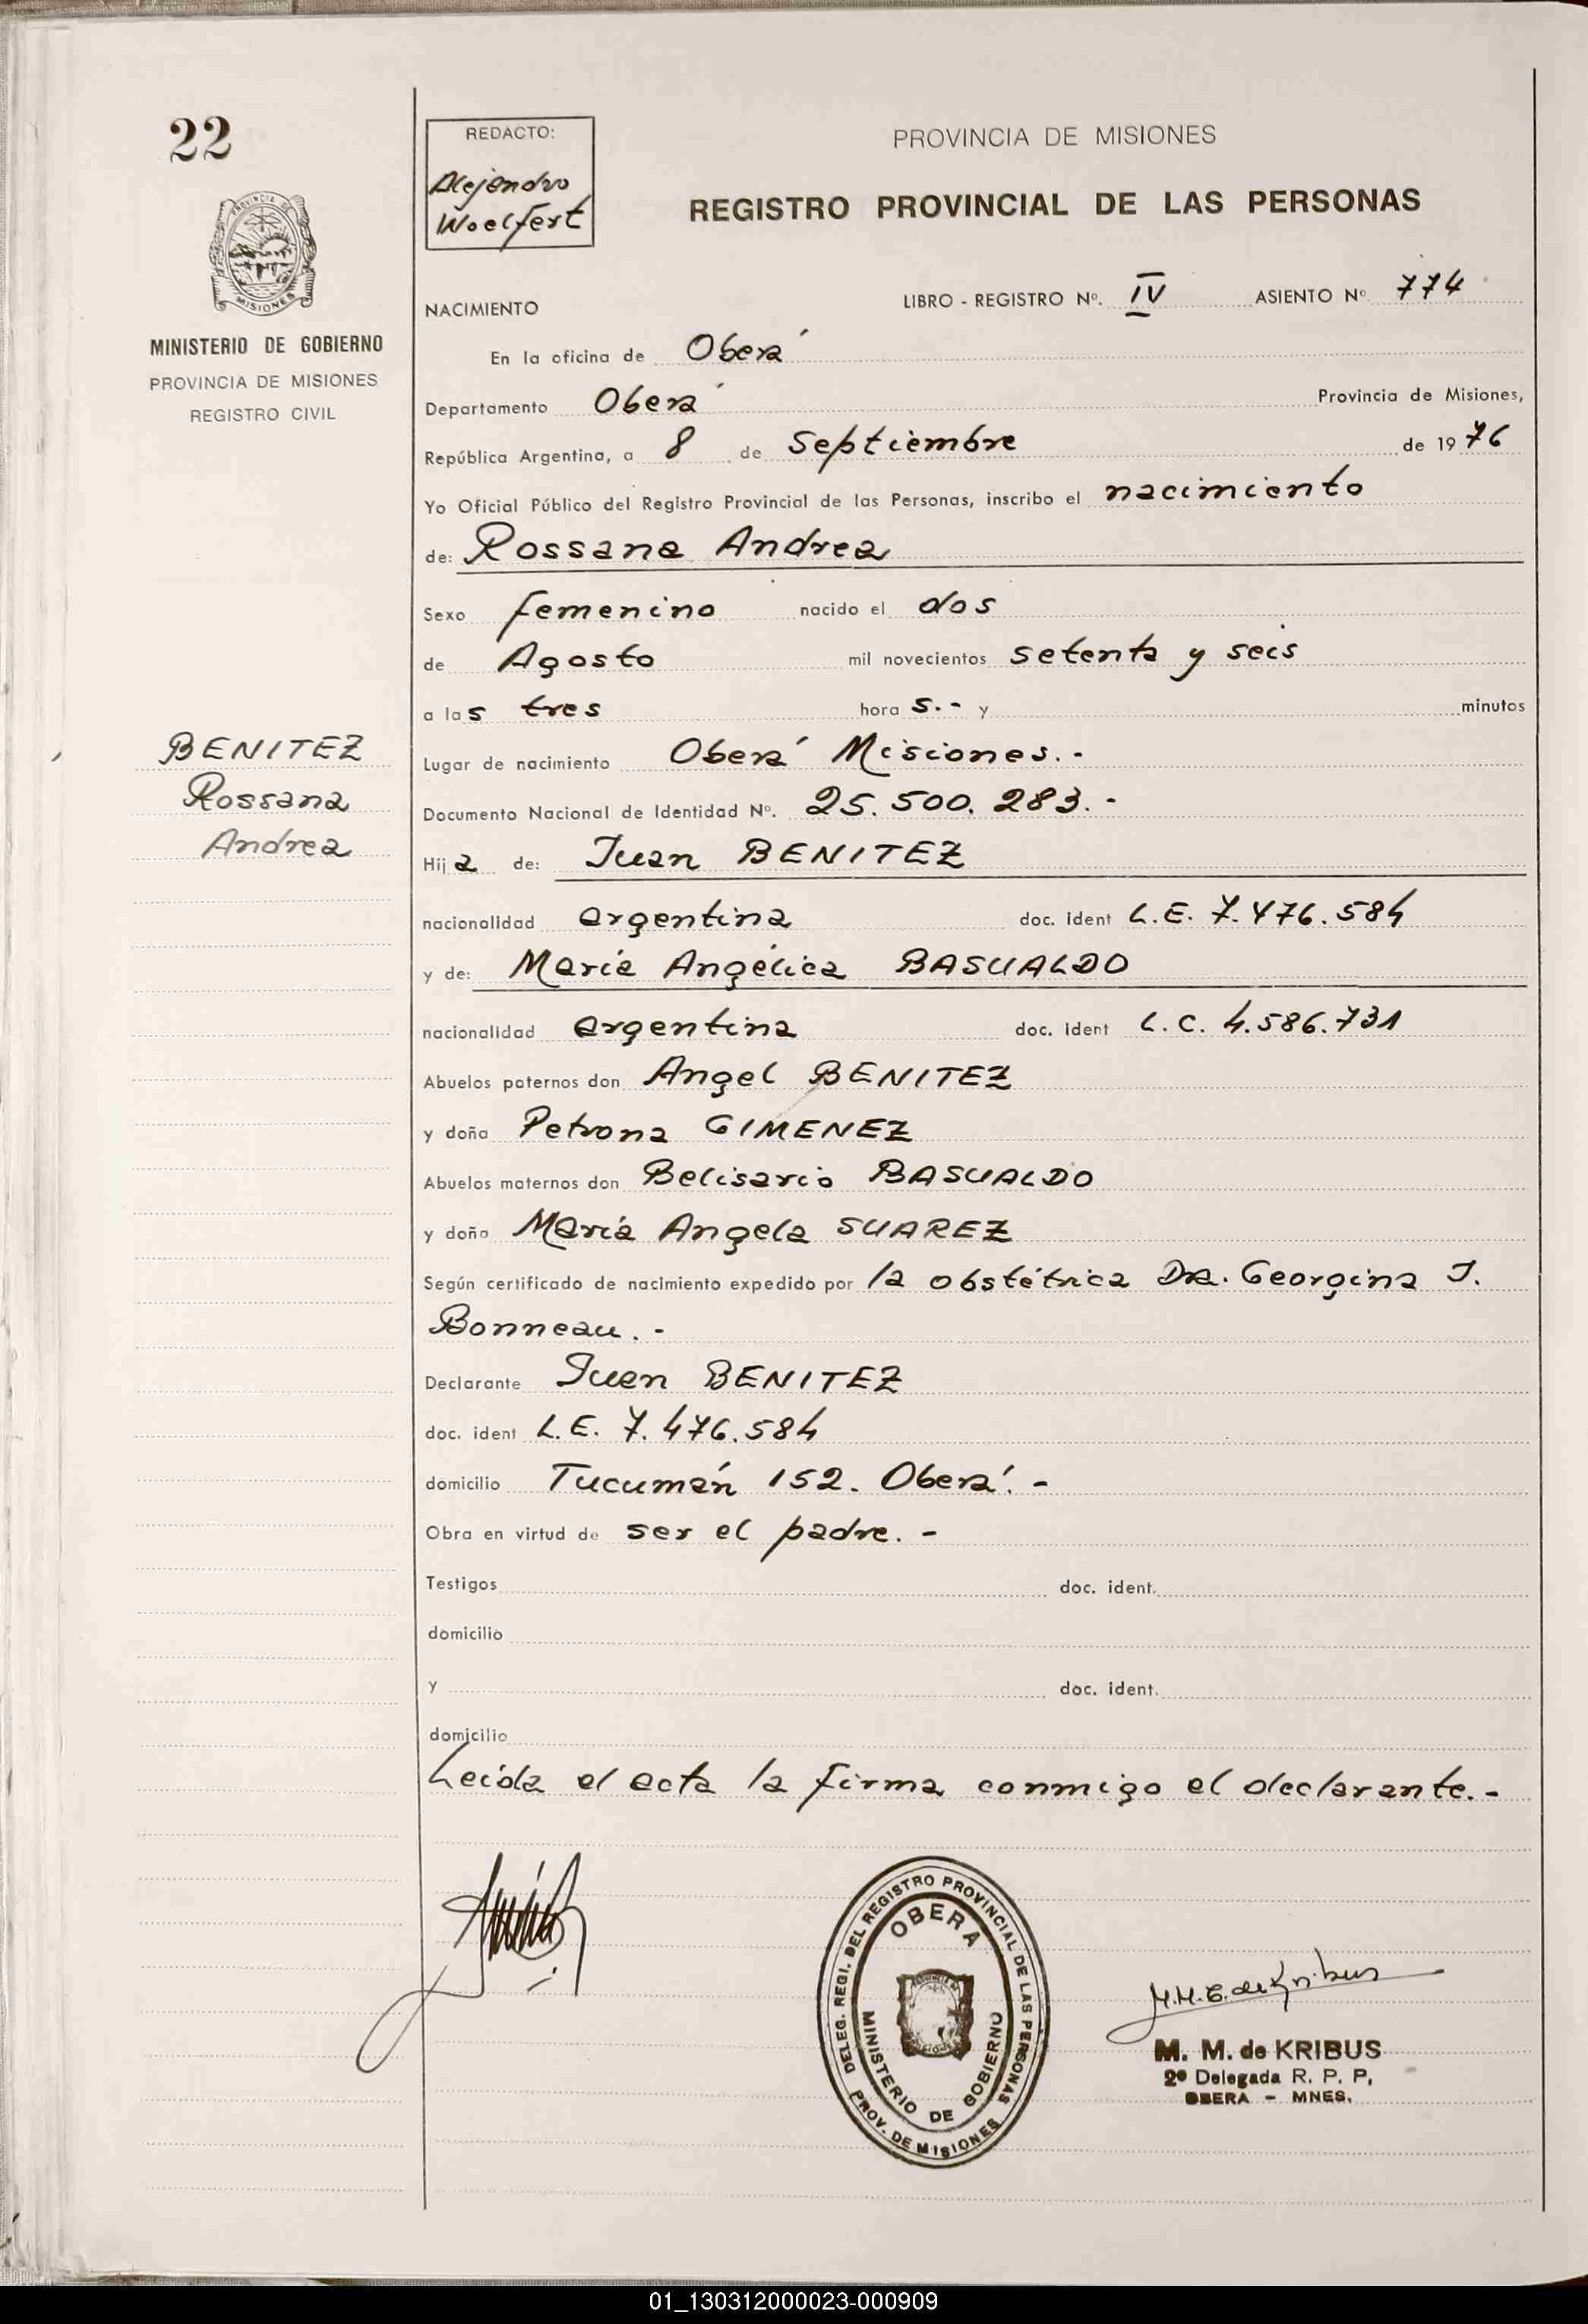 22
REDACTO:
Alejandro
Woelfert
PROVINCIA DE MISIONES
REGISTRO PROVINCIAL DE LAS PERSONAS
MINISTERIO DE GOBIERNO
PROVINCIA DE MISIONES
REGISTRO CIVIL
NACIMIENTO LIBRO - REGISTRO Nº. IV ASIENTO Nº 774
En la oficina de Oberá
Departamento Oberá Provincia de Misiones,
República Argentina, a 8 de Septiembre de 1976
Yo Oficial Público del Registro Provincial de las Personas, inscribo el nacimiento
de: Rossana Andrea
Sexo femenino nacido el dos
de Agosto mil novecientos setenta y seis
a las tres hora s.- y minutos
BENITEZ
Rossana
Andrea
Lugar de nacimiento Oberá Misiones.-
Documento Nacional de Identidad Nº. 25.500.283.-
Hija de: Juan BENITEZ
nacionalidad argentina doc. ident L.E. 7.476.584
y de: María Angélica BASUALDO
nacionalidad argentina doc. ident L.C. 4.586.731
Abuelos paternos don Angel BENITEZ
y doña Petrona GIMENEZ
Abuelos maternos don Belisario BASUALDO
y doña María Angela SUAREZ
Según certificado de nacimiento expedido por la obstétrica Dra. Georgina J.
Bonneau.-
Declarante Juan BENITEZ
doc. ident L.E. 7.476.584
domicilio Tucumán 152. Oberá.-
Obra en virtud de ser el padre.-
Testigos doc. ident.
domicilio
y doc. ident.
domicilio
Leída el acta la firma conmigo el declarante.-
DELEG. REGI. DEL REGISTRO PROVINCIAL DE LAS PERSONAS
OBERA
MINISTERIO DE GOBIERNO
PROV. DE MISIONES
M.M.C. de Kribus
M. M. de KRIBUS
2º Delegada R. P. P,
OBERA - MNES.
01_130312000023-000909